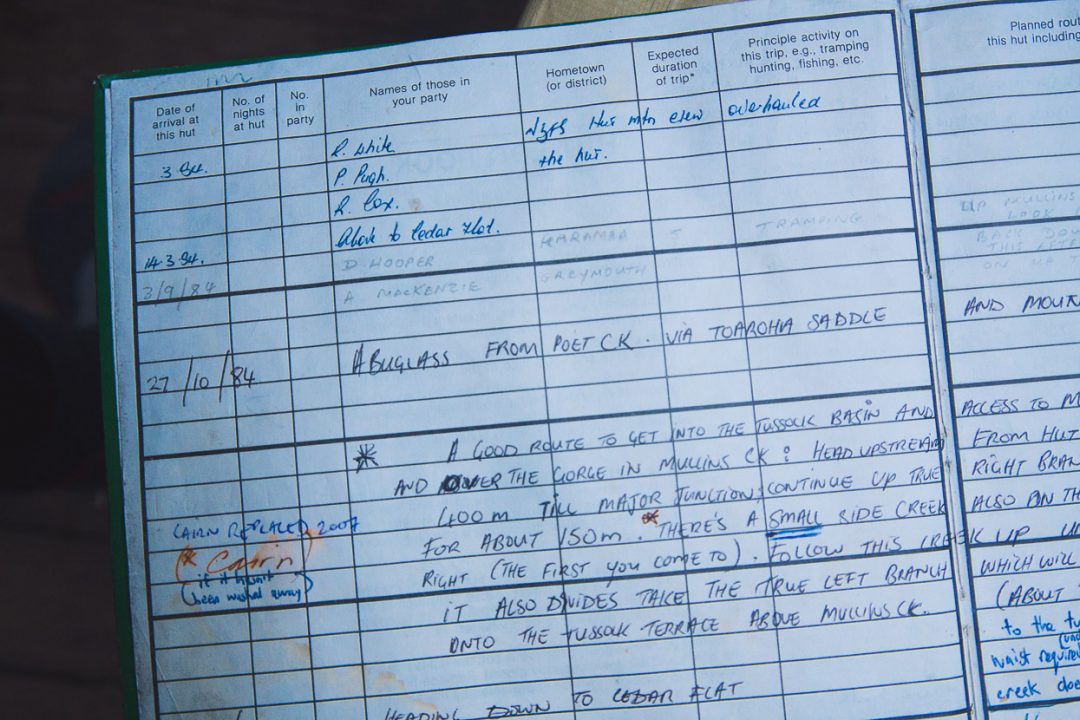 Date of arrival at this hut
No. of nights at hut
No. in party
Names of those in your party
Hometown (or district)
Expected duration of trip*
Principle activity on this trip, e.g., tramping hunting, fishing, etc.
Planned rou
this hut including
R. White NZFS Hut mtn crew overhauled
3
P. Pugh. the hut.
R. Cox.
Above to Cedar Flat.
14.3.84. D. HOOPER KARAMEA 5 TRAMPING
UP MULLINS
LOOK
BACK DOW
3/9/84 A MACKENZIE GREYMOUTH
27/10/84 A BUGLASS FROM POET CK. VIA TOAROHA SADDLE
AND MOUN
* A GOOD ROUTE TO GET INTO THE TUSSOCK BASIN AND
AND OVER THE GORGE IN MULLINS CK: HEAD UPSTREAM
400m TILL MAJOR JUNCTION, CONTINUE UP TRUE
FOR ABOUT 150m. * THERE'S A SMALL SIDE CREEK
RIGHT (THE FIRST YOU COME TO). FOLLOW THIS CREEK UP
IT ALSO DIVIDES TAKE THE TRUE LEFT BRANCH
ONTO THE TUSSOCK TERRACE ABOVE MULLINS CK.
HEADING DOWN TO CEDAR FLAT
CAIRN REPLACED 2007
(* Cairn)
(if it hasn't
been washed away)
ACCESS TO M
FROM HUT
RIGHT BRAN
ALSO ON TH
WHICH WILL
(ABOUT
to the tu
waist require
creek doe